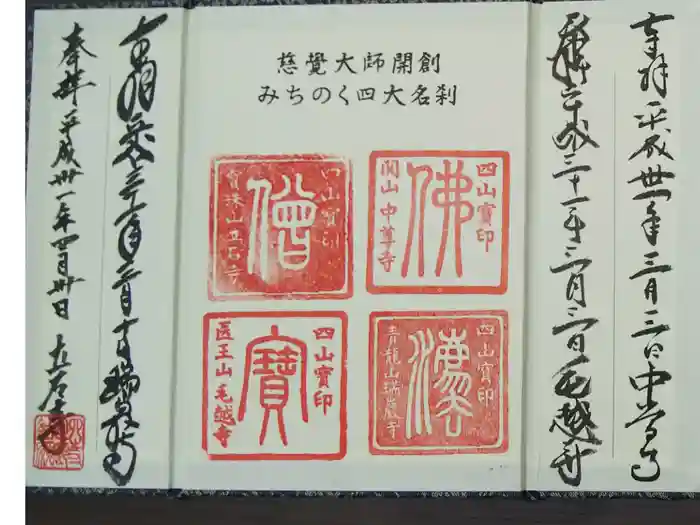 慈覺大師開創
みちのく四大名刹
四山寶印
佛
関山 中尊寺
四山寶印
僧
寳珠山 立石寺
四山寶印
法
青龍山 瑞巌寺
四山寶印
寶
医王山 毛越寺
奉拝 平成卅一年 三月三日 中尊寺
奉拝 平成三十一年三月三日 毛越寺
奉拝 平成卅一年四月卅日 立石寺